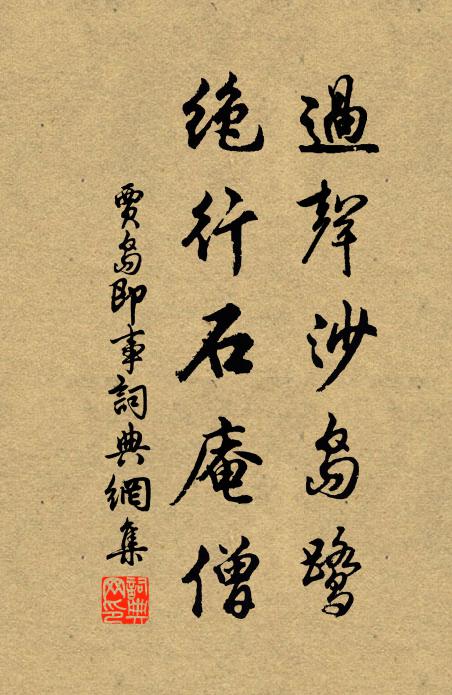 過聲沙島鷺
絶行石庵僧
賈島即事詞典網集
詞典网印